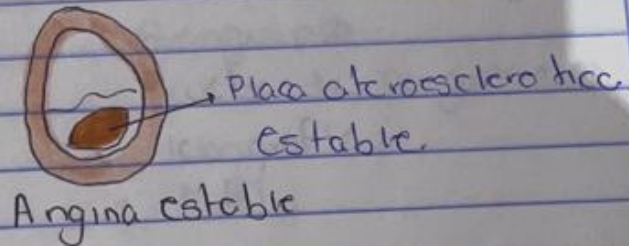 Placa ateroesclerotica
estable.
Angina estable